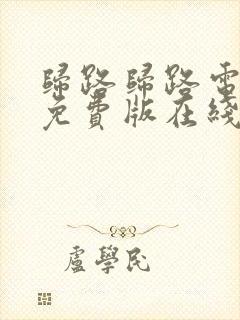 歸路歸路電
免費版在綫
盧學民